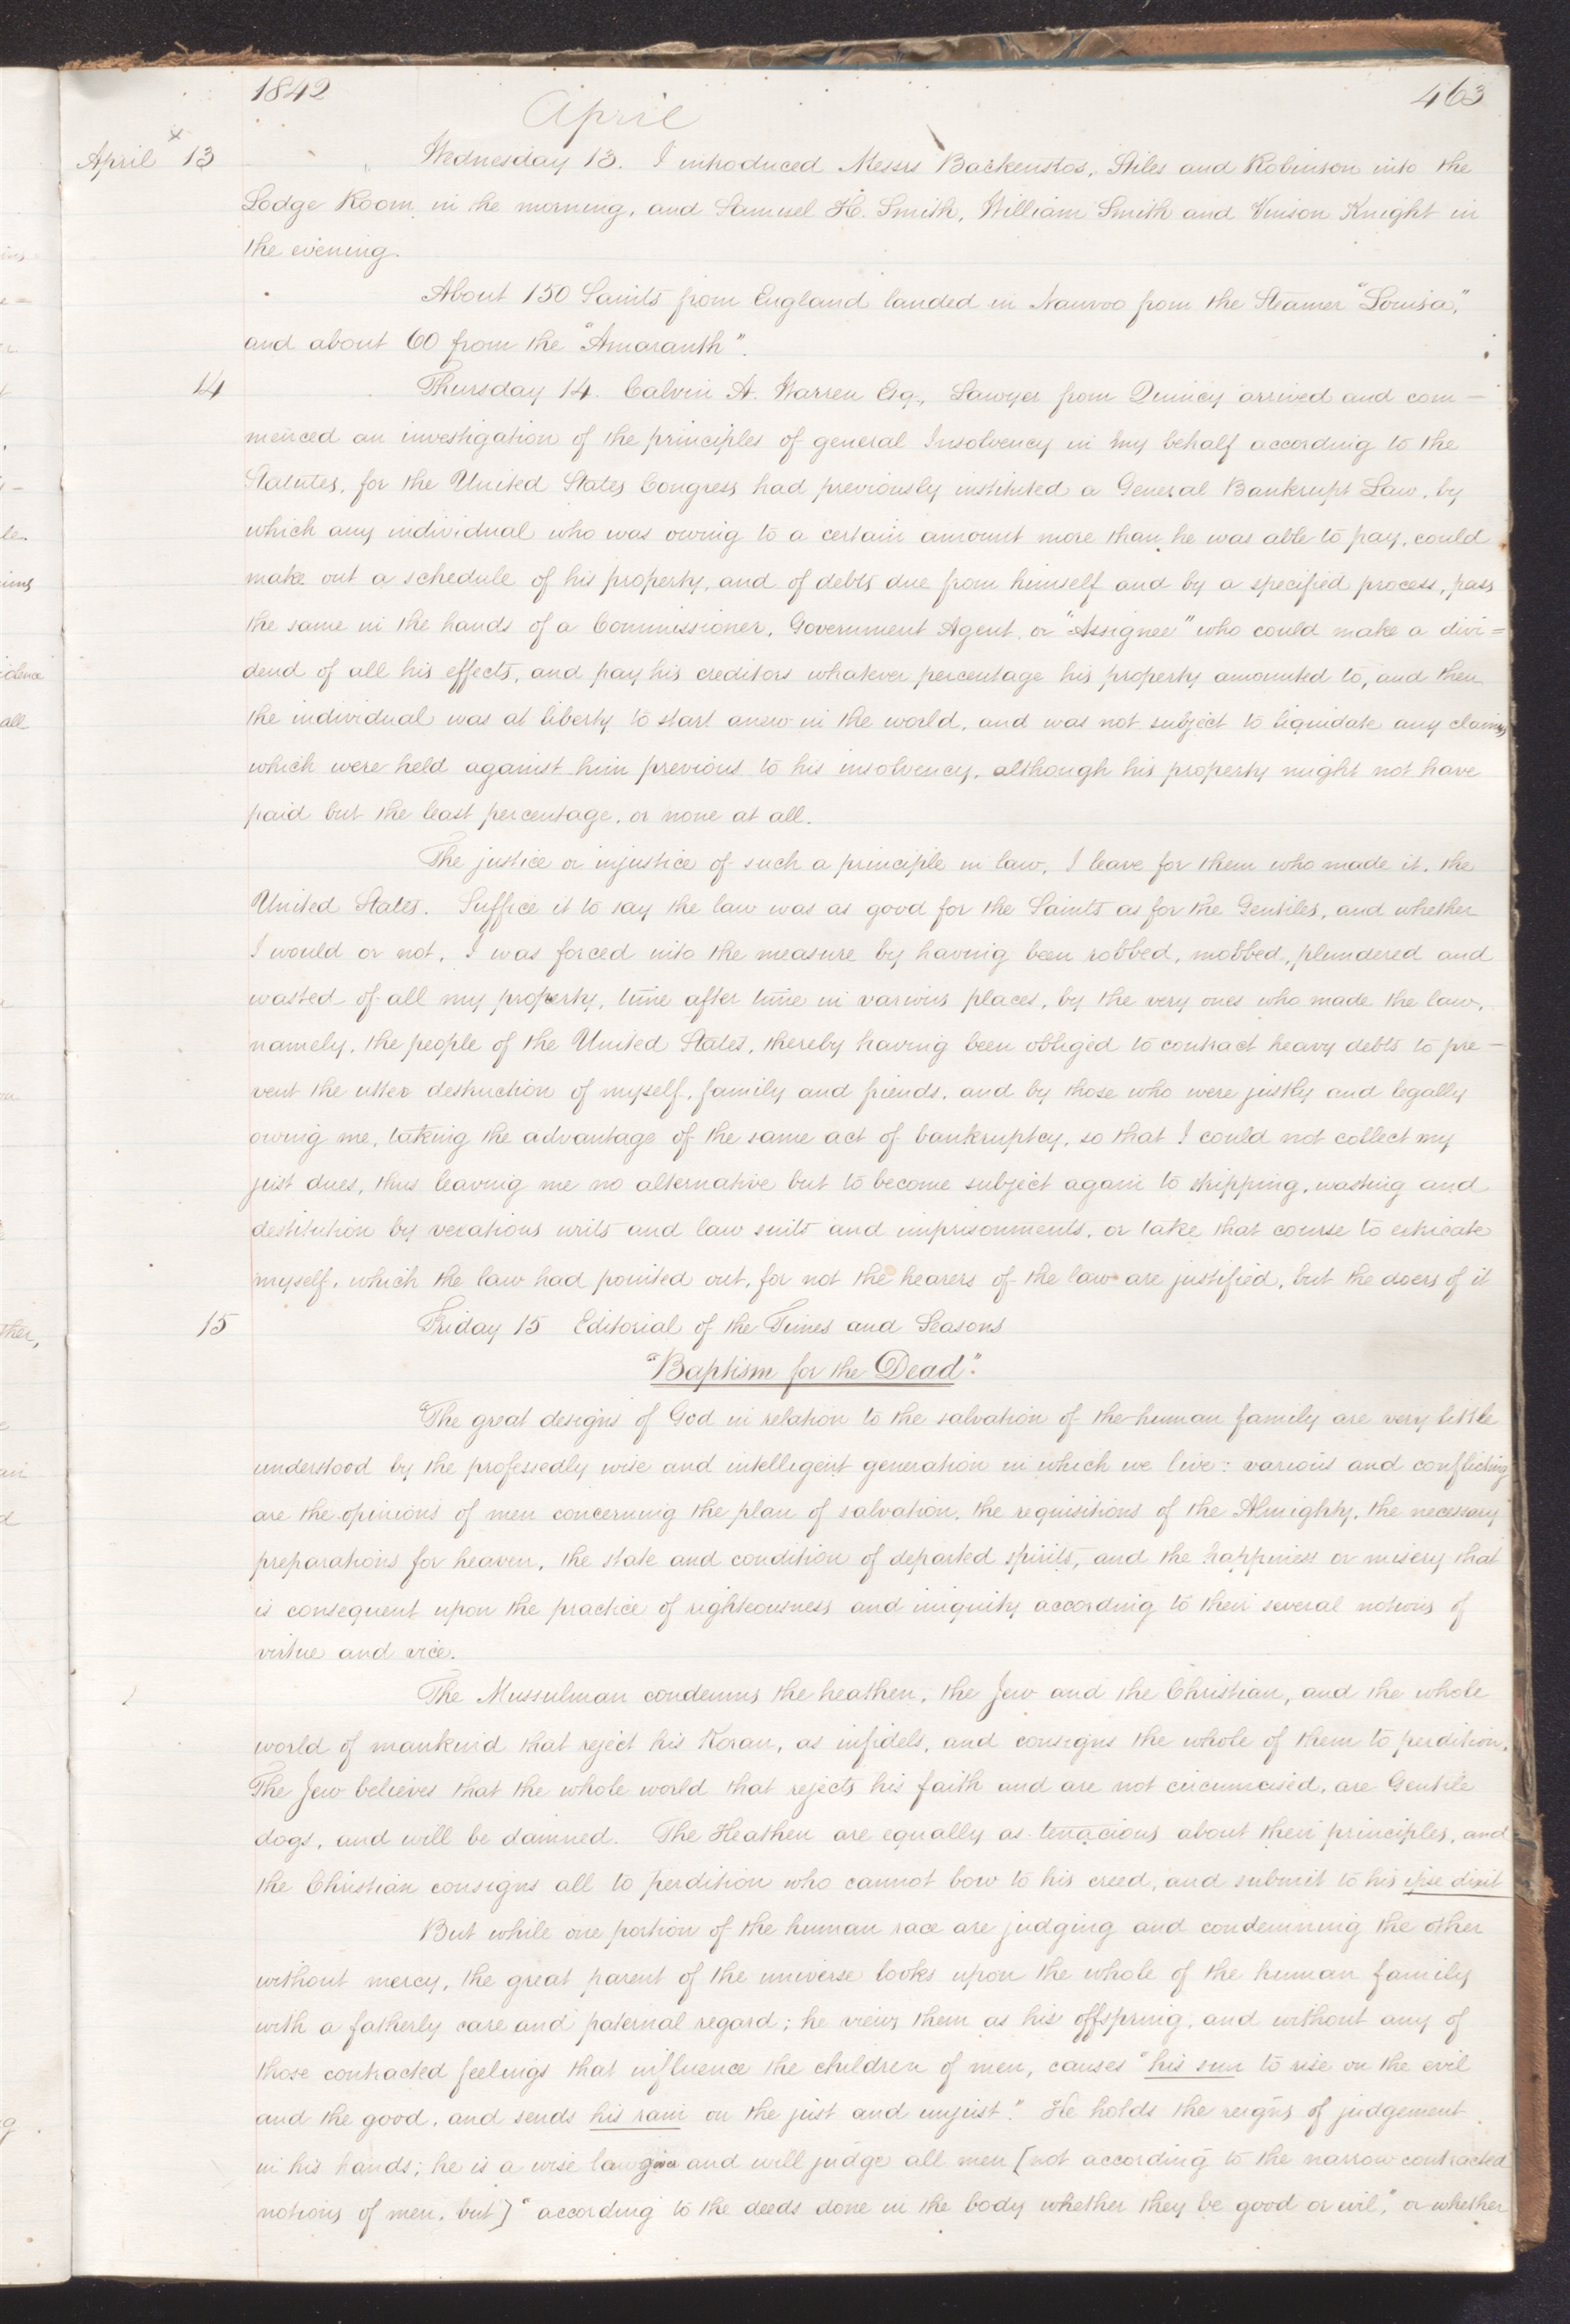 1842
463
April
April 13
Wednesday 13. I introduced Messrs Backenstos, Stiles and Robinson into the
Lodge Room in the morning, and Samuel H. Smith, William Smith and Vinson Knight in
the evening.
About 150 Saints from England landed in Nauvoo from the Steamer "Louisa,"
and about 60 from the "Amaranth".
14
Thursday 14. Calvin A. Warren Esq., Lawyer from Quincy arrived and com-
menced an investigation of the principles of general Insolvency in my behalf according to the
Statutes, for the United States Congress had previously instituted a General Bankrupt Law, by
which any individual who was owing to a certain amount more than he was able to pay, could
make out a schedule of his property, and of debts due from himself and by a specified process, pass
the same in the hands of a Commissioner, Government Agent, or "Assignee" who could make a divi=
dend of all his effects, and pay his creditors whatever percentage his property amounted to, and then
the individual was at liberty to start anew in the world, and was not subject to liquidate any claims
which were held against him previous to his insolvency, although his property might not have
paid but the least percentage, or none at all.
The justice or injustice of such a principle in law, I leave for them who made it, the
United States. Suffice it to say the law was as good for the Saints as for the Gentiles, and whether
I would or not, I was forced into the measure by having been robbed, mobbed, plundered and
wasted of all my property, time after time in various places, by the very ones who made the law,
namely, the people of the United States, thereby having been obliged to contract heavy debts to pre-
vent the utter destruction of myself, family and friends, and by those who were justly and legally
owing me, taking the advantage of the same act of bankruptcy, so that I could not collect my
just dues, thus leaving me no alternative but to become subject again to stripping, wasting and
destitution by vexatious writs and law suits and imprisonments, or take that course to extricate
myself, which the law had pointed out, for not the hearers of the law are justified, but the doers of it
15
Friday 15 Editorial of the Times and Seasons
"Baptism for the Dead".
"The great designs of God in relation to the salvation of the human family are very little
understood by the professedly wise and intelligent generation in which we live: various and conflicting
are the opinions of men concerning the plan of salvation, the requisitions of the Almighty, the necessary
preparations for heaven, the state and condition of departed spirits, and the happiness or misery that
is consequent upon the practice of righteousness and iniquity according to their several notions of
virtue and vice.
The Mussulman condemns the heathen, the Jew and the Christian, and the whole
world of mankind that reject his Koran, as infidels, and consigns the whole of them to perdition.
The Jew believes that the whole world that rejects his faith and are not circumcised, are Gentile
dogs, and will be damned. The Heathen are equally as tenacious about their principles, and
the Christian consigns all to perdition who cannot bow to his creed, and submit to his ipse dixit
But while one portion of the human race are judging and condemning the other
without mercy, the great parent of the universe looks upon the whole of the human family
with a fatherly care and paternal regard; he views them as his offspring, and without any of
those contracted feelings that influence the children of men, causes "his sun to rise on the evil
and the good, and sends his rain on the just and unjust." He holds the reigns of judgement
in his hands; he is a wise lawgiver and will judge all men [not according to the narrow contracted
notions of men, but] "according to the deeds done in the body whether they be good or evil," or whether